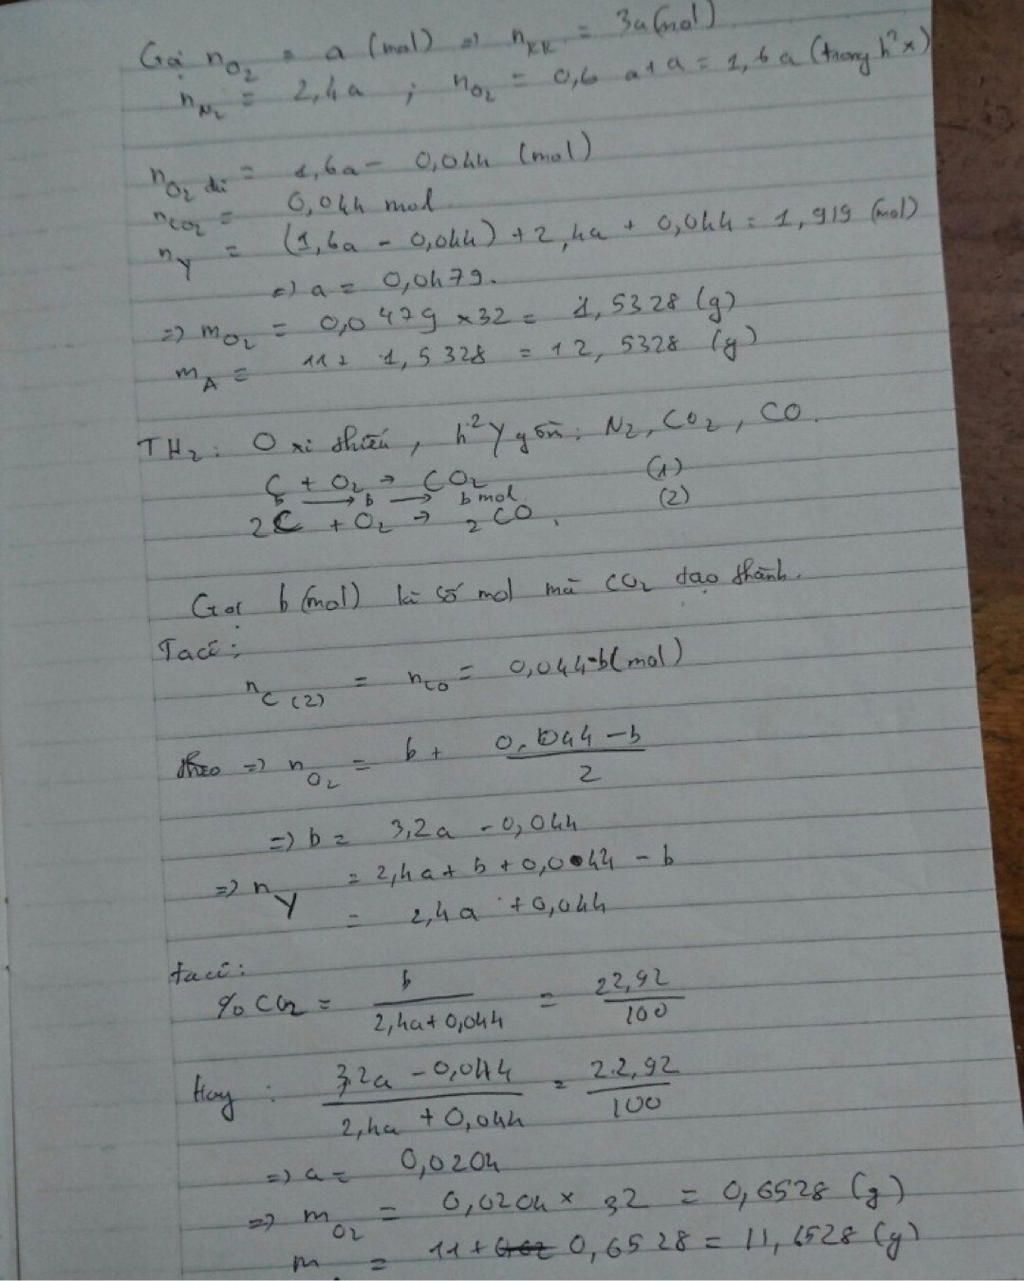 Gọi nO2 = a (mol) => nKK = 3a (mol)
nN2 = 2,4a ; nO2 = 0,6 a + a = 1,6a (trong h²x)
nO2 dư = 1,6a - 0,044 (mol)
nCO2 = 0,044 mol
nY = (1,6a - 0,044) + 2,4a + 0,044 = 1,919 (mol)
=> a = 0,0479.
=> mO2 = 0,0479 x 32 = 1,5328 (g)
mA = 11 + 1,5328 = 12,5328 (g)
TH2: Oxi thiếu, h² Y gồm: N2, CO2, CO.
C + O2 → CO2 (1)
b → b → b mol
2C + O2 → 2CO. (2)
Gọi b (mol) là số mol mà CO2 tạo thành.
Ta có:
nC (2) = nCO = 0,044-b (mol)
theo => nO2 = b + (0,044 - b)/2
=> b = 3,2a - 0,044
=> nY = 2,4a + b + 0,044 - b
= 2,4a + 0,044
ta có:
% CO2 = b/(2,4a + 0,044) = 22,92/100
Hay : (3,2a - 0,044)/(2,4a + 0,044) = 22,92/100
=> a = 0,0204
=> mO2 = 0,0204 x 32 = 0,6528 (g)
m = 11 + 0,6528 = 11,6528 (g)